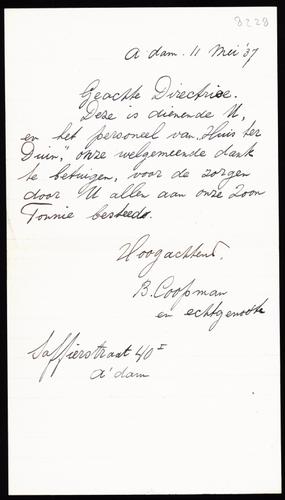 8228
A'dam. 11 Mei '37
Geachte Directrise.
Deze is dienende U,
en het personeel van "Huis ter
Duin", onze welgemeende dank
te betuigen, voor de zorgen
door U allen aan onze Zoon
Tonnie besteed.
Hoogachtend.
B. Coopman
en echtgenoote
Saffierstraat 40 I
A'dam